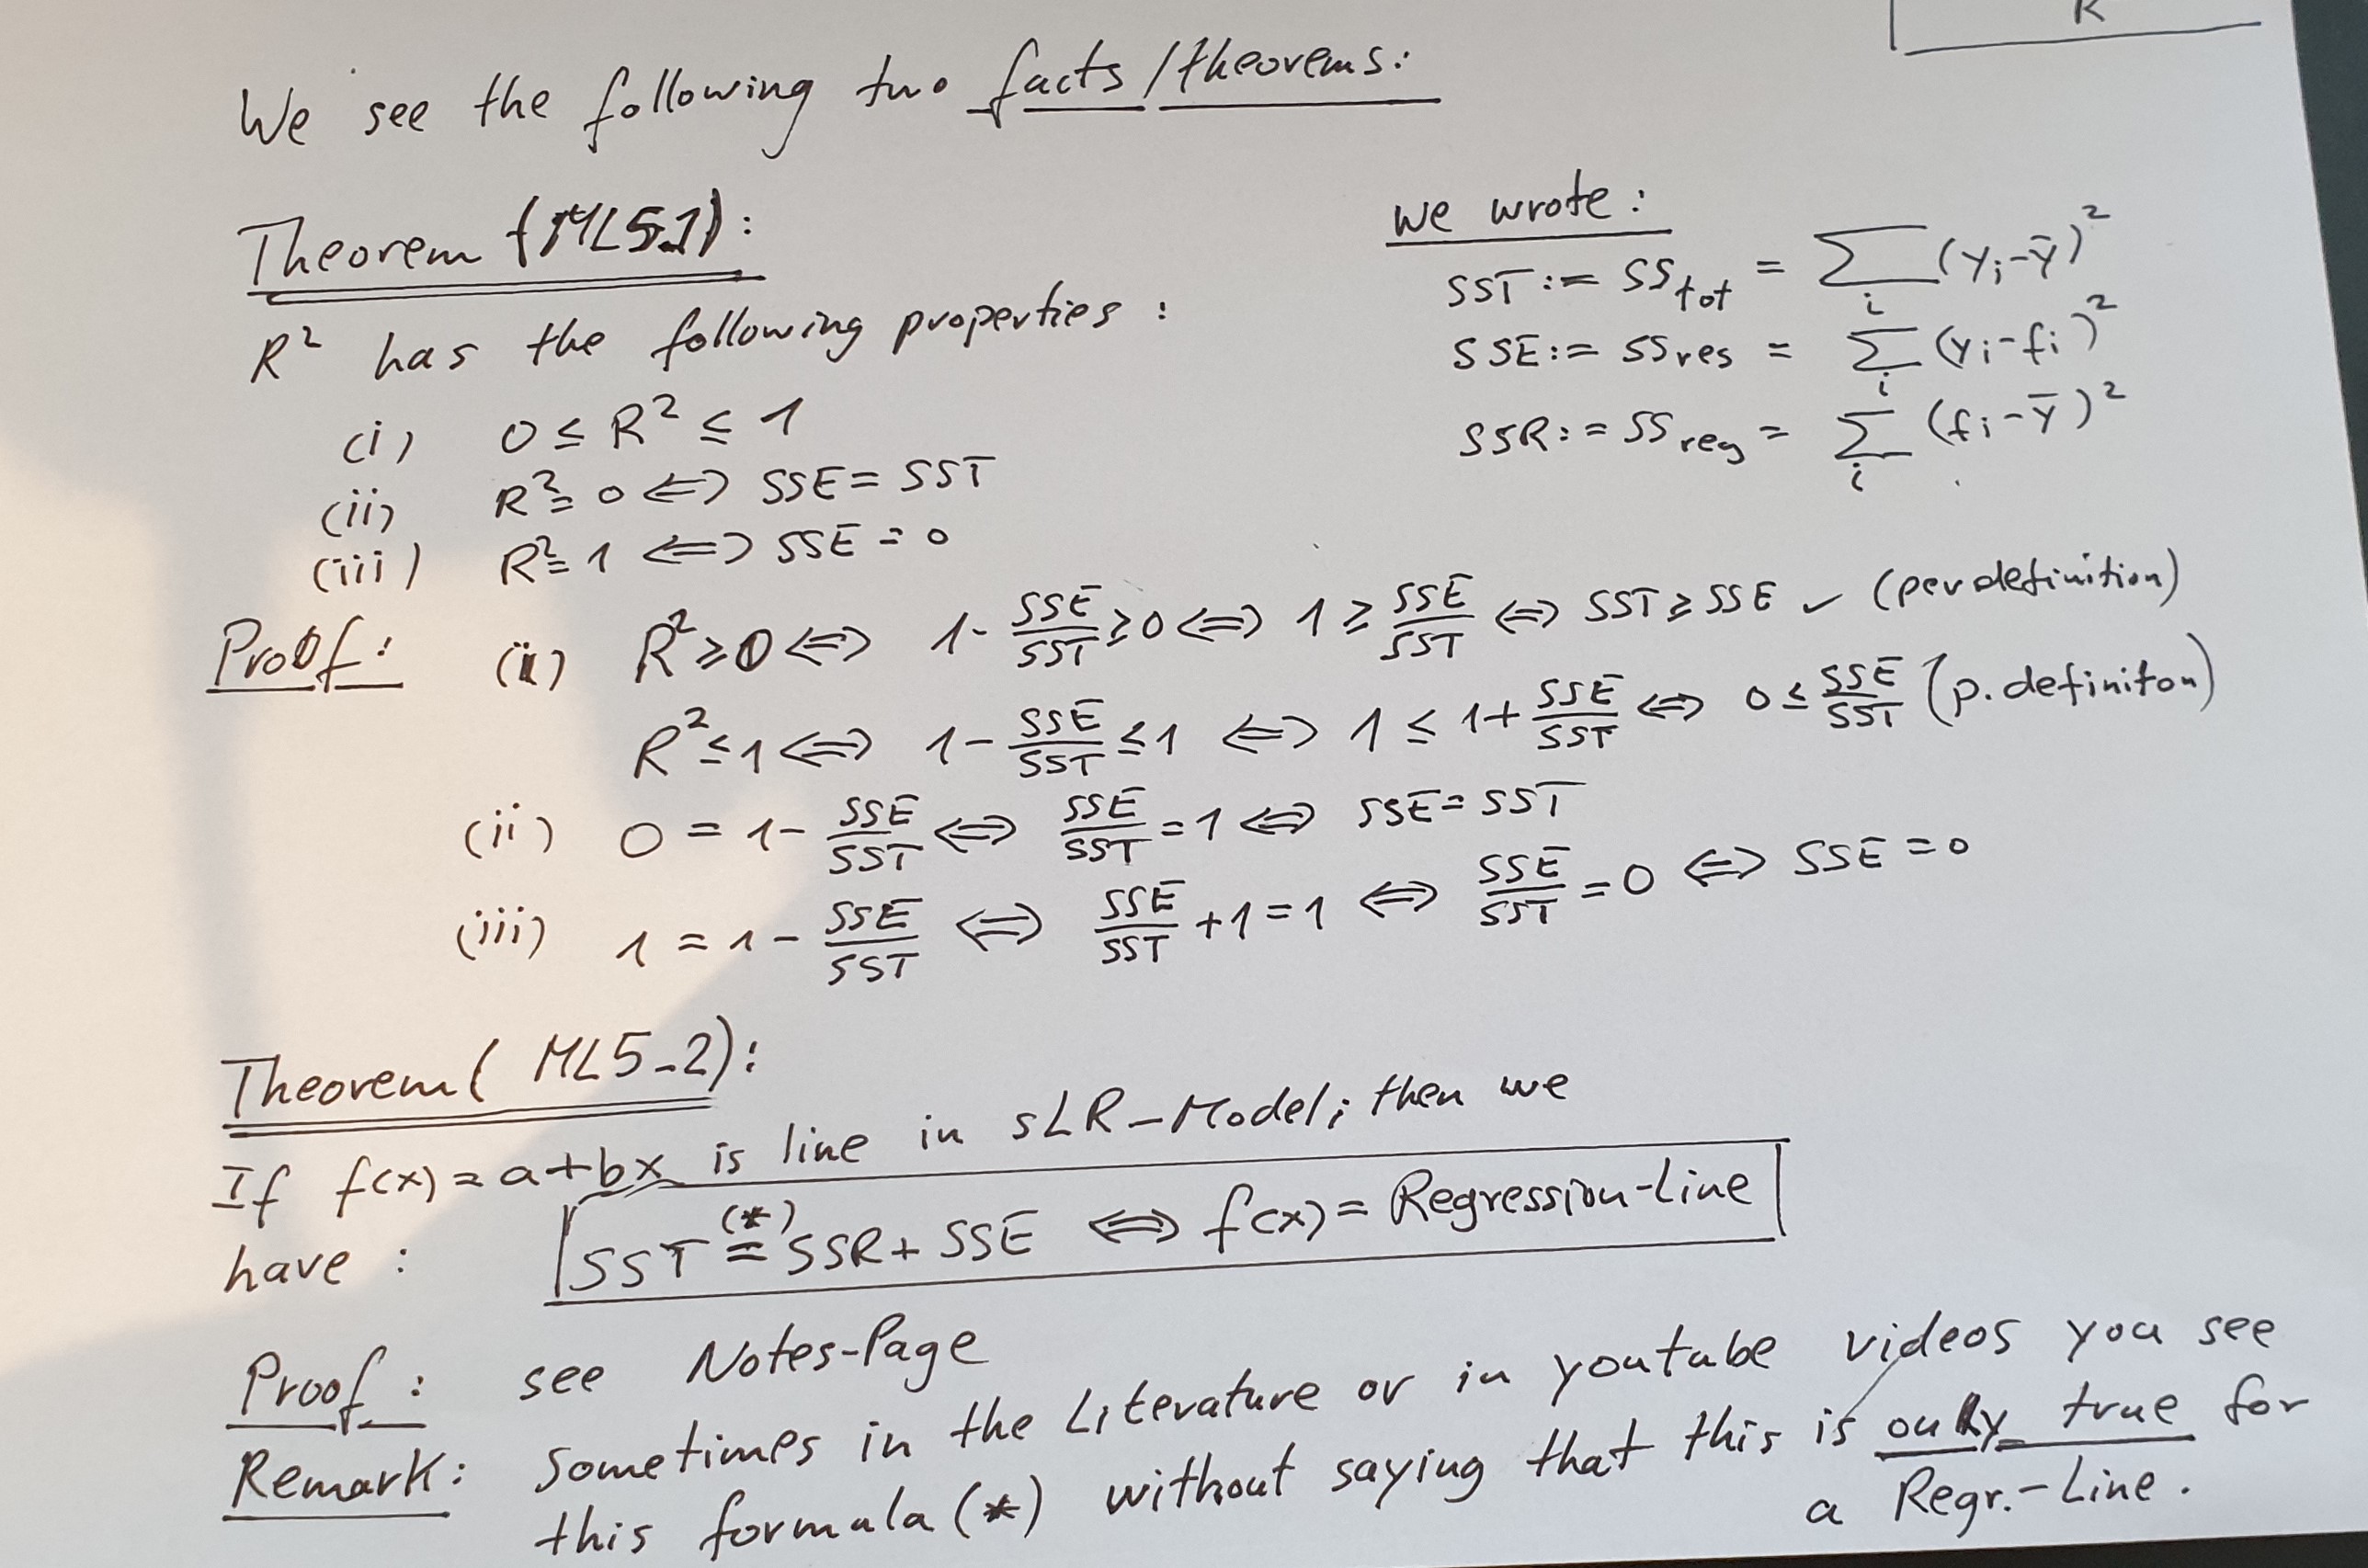 R
We see the following two facts/theorems:
Theorem (ML5-1):
R² has the following properties:
(i) 0 ≤ R² ≤ 1
(ii) R² = 0 ⟺ SSE = SST
(iii) R² = 1 ⟺ SSE = 0
we wrote:
SST := SS_tot = ∑_i (y_i - ȳ)²
SSE := SS_res = ∑_i (y_i - f_i)²
SSR := SS_reg = ∑_i (f_i - ȳ)²
Proof: (i) R² ≥ 0 ⟺ 1 - SSE/SST ≥ 0 ⟺ 1 ≥ SSE/SST ⟺ SST ≥ SSE ✓ (per definition)
R² ≤ 1 ⟺ 1 - SSE/SST ≤ 1 ⟺ 1 ≤ 1 + SSE/SST ⟺ 0 ≤ SSE/SST (p. definiton)
(ii) 0 = 1 - SSE/SST ⟺ SSE/SST = 1 ⟺ SSE = SST
(iii) 1 = 1 - SSE/SST ⟺ SSE/SST + 1 = 1 ⟺ SSE/SST = 0 ⟺ SSE = 0
Theorem (ML5-2):
If f(x) = a+bx is line in sLR-Model; then we
have: SST (*)= SSR + SSE ⟺ f(x) = Regression-Line
Proof: see Notes-Page
Remark: Sometimes in the Literature or in youtube videos you see
this formula (*) without saying that this is only true for
a Regr.-Line.